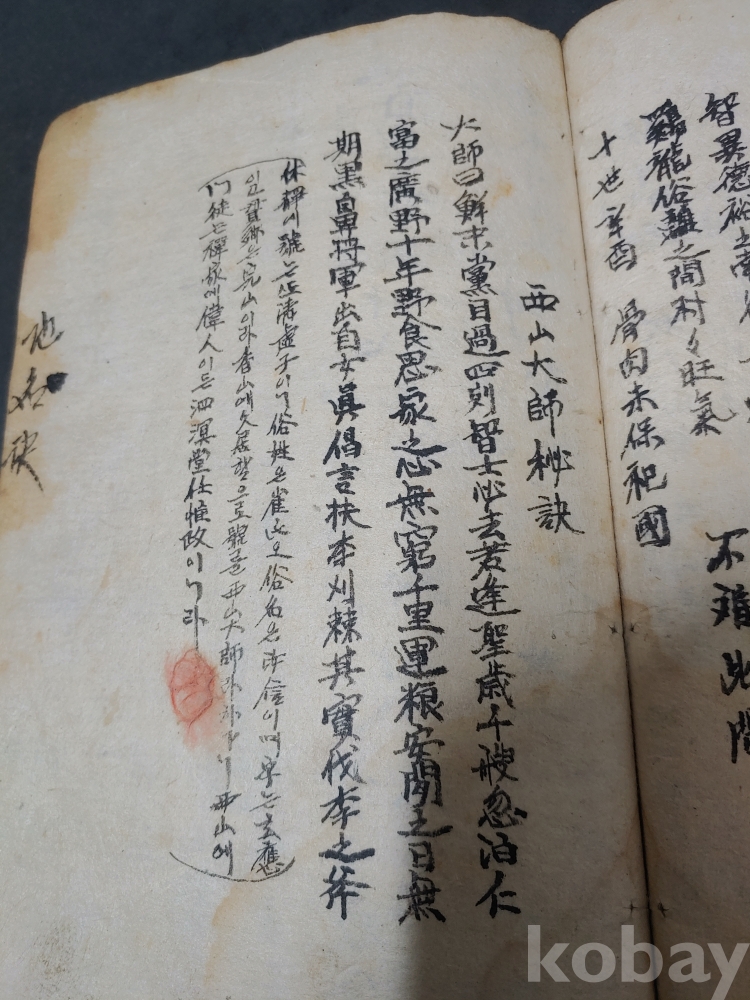 智異德裕
鷄龍俗離之間村々旺氣
十世辛酉 骨肉未保祀國
不
此間
西山大師秘訣
大師曰鮮末黨目過四列智士必去若逢聖歲千艘忽泊仁
富之廣野十年野食思家之心無窮千里運粮安閒之日無
期黑自卑將軍出自女眞倡言扶李刈棘其實伐李之斧
休禪에號는 淸虛子이니俗姓은崔氏오俗名은汝信이며字는玄應
이오 은完山이라香山에久居 으로號를西山大師라 니西山에
門徒는禪家에偉人이든泗溟堂任惟政이니라
訣
kobay